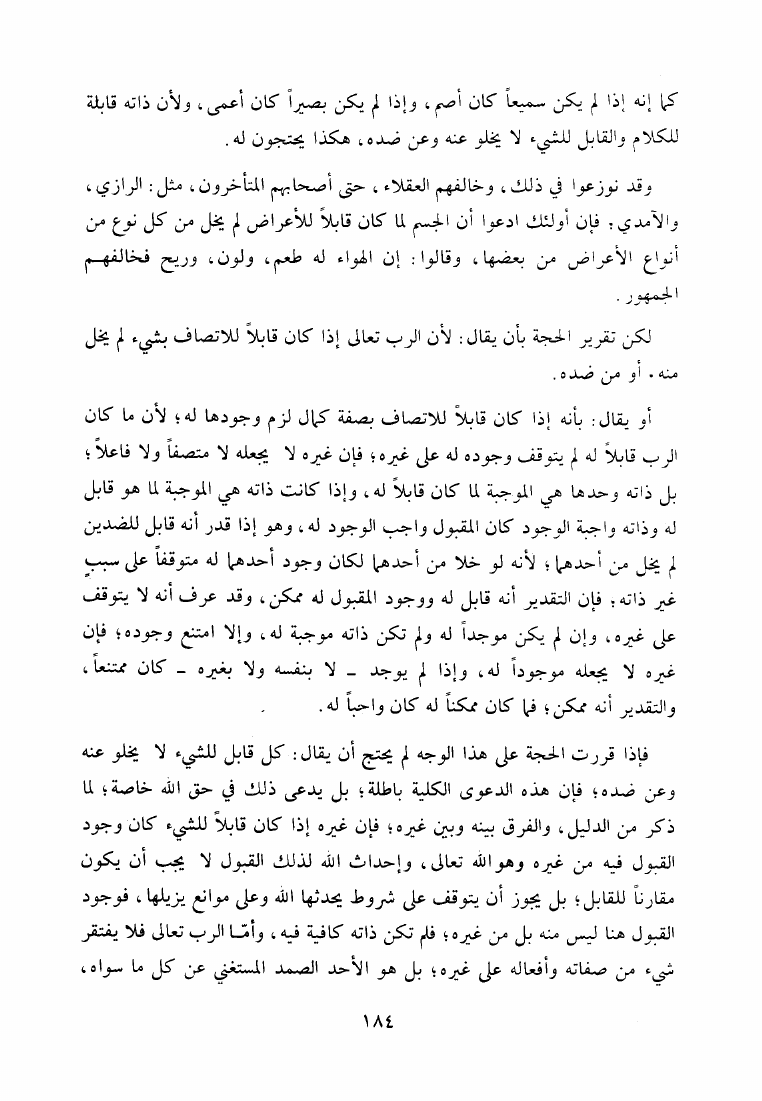 كما إنه إذا لم يكن سميعاً كان أصم، وإذا لم يكن بصيراً كان أعمى، ولأن ذاته قابلة
للكلام والقابل للشيء لا يخلو عنه وعن ضده، هكذا يحتجون له.
وقد نوزعوا في ذلك، وخالفهم العقلاء، حتى أصحابهم المتأخرون، مثل: الرازي،
والآمدي: فإن أولئك ادعوا أن الجسم لما كان قابلاً للأعراض لم يخل من كل نوع من
أنواع الأعراض من بعضها، وقالوا: إن الهواء له طعم، ولون، وريح فخالفهم
الجمهور.
لكن تقرير الحجة بأن يقال: لأن الرب تعالى إذا كان قابلاً للاتصاف بشيء لم يخل
منه. أو من ضده.
أو يقال: بأنه إذا كان قابلاً للاتصاف بصفة كمال لزم وجودها له؛ لأن ما كان
الرب قابلاً له لم يتوقف وجوده له على غيره؛ فإن غيره لا يجعله لا متصفاً ولا فاعلاً؛
بل ذاته وحدها هي الموجبة لما كان قابلاً له، وإذا كانت ذاته هي الموجبة لما هو قابل
له وذاته واجبة الوجود كان المقبول واجب الوجود له، وهو إذا قدر أنه قابل للضدين
لم يخل من أحدهما؛ لأنه لو خلا من أحدهما لكان وجود أحدهما له متوقفاً على سببٍ
غير ذاته: فإن التقدير أنه قابل له ووجود المقبول له ممكن، وقد عرف أنه لا يتوقف
على غيره، وإن لم يكن موجداً له ولم تكن ذاته موجبة له، وإلا امتنع وجوده؛ فإن
غيره لا يجعله موجوداً له، وإذا لم يوجد - لا بنفسه ولا بغيره - كان ممتنعاً،
والتقدير أنه ممكن؛ فما كان ممكناً له كان واحباً له.
فإذا قررت الحجة على هذا الوجه لم يحتج أن يقال: كل قابل للشيء لا يخلو عنه
وعن ضده؛ فإن هذه الدعوى الكلية باطلة؛ بل يدعى ذلك في حق الله خاصة؛ لما
ذكر من الدليل، والفرق بينه وبين غيره؛ فإن غيره إذا كان قابلاً للشيء كان وجود
القبول فيه من غيره وهو الله تعالى، وإحداث الله لذلك القبول لا يجب أن يكون
مقارناً للقابل؛ بل يجوز أن يتوقف على شروط يحدثها الله وعلى موانع يزيلها، فوجود
القبول هنا ليس منه بل من غيره؛ فلم تكن ذاته كافية فيه، وأمّا الرب تعالى فلا يفتقر
شيء من صفاته وأفعاله على غيره؛ بل هو الأحد الصمد المستغني عن كل ما سواه،
١٨٤